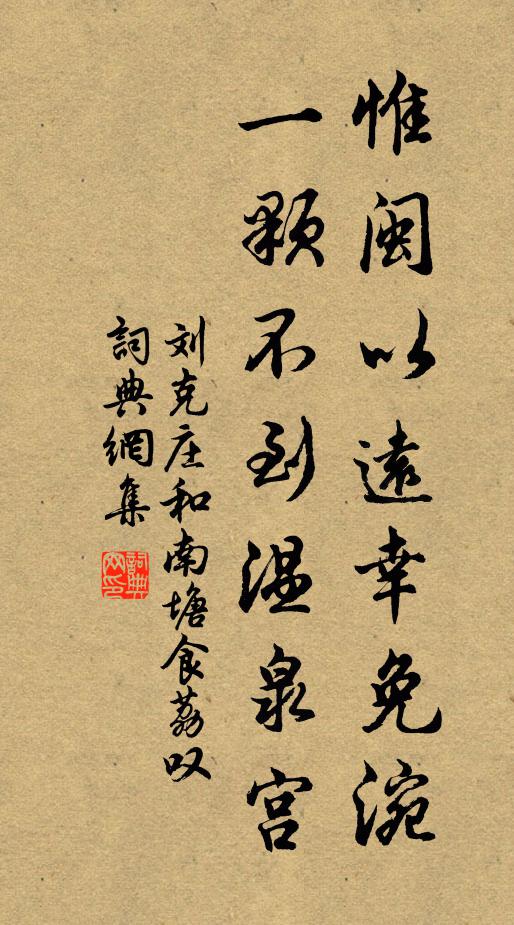 惟闽以遠幸免涴
一颗不到温泉宫
刘克庄和南塘食荔叹
詞典網集
詞典網印